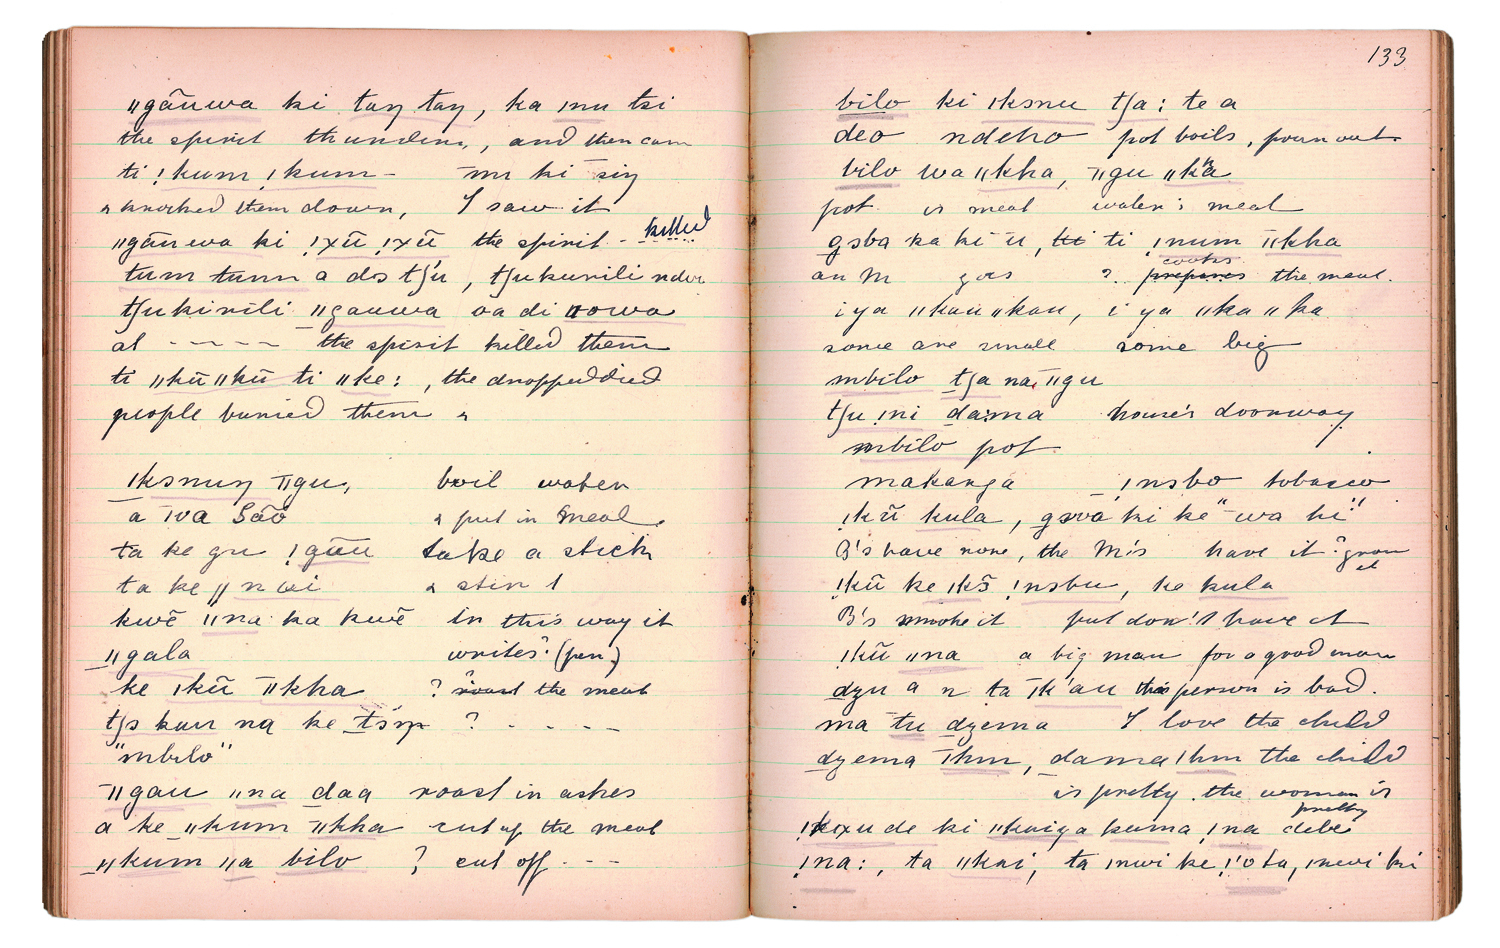 ǁgãuwa ki taŋ taŋ, ka ınu tsi
the spirit thunders, and then com
ti !kum !kum – mr ki siŋ
& knocked them down, I saw it
ǁgãuwa ki !xū !xū the spirit - killed
tum tumm a ds tʃu, tʃukurili
tʃukirili ǁgauwa oa di ǁowa
at - - - - the spirit killed them
ti ǁkũ ǁkũ ti ǁke: , the dropped died
people buried them "
ıksnuŋ ǁgu, boil water
a ıoa Sāō & put in meal.
ta ke gu !gāū take a stick
ta ke ǁnwi & stir
kwē ǁna ka kwē in this way it
ǁgala writes? (pen)
ke ıkū ǁkha ? roast the meat
tʃs kau na ke ? - - - -
"mbilo"
ǁgau ǁna daa roast in ashes
a ke ǁkum ǁkha cut up the meat
ǁkum ǁa bilo ? cut off - - -
133
bilo ki ıksnu tʃa: te a
deo ndeho pot boils, pour out
bilo wa ǁkha, ǁgu ǁka
pot is meat water's meat
gsba ka ki ū, ti ınum ǁkha
an M goes ?. cooks prepares the meat.
i ya ǁkau ǁkau, i ya ǁka ǁka
some are small some big
mbilo tʃa na ǁgu
tʃu ıni dama house's doorway
mbilo pot
makanga ınsbo tobacco
!kū kula, gsva ki ke "wa ki"
B's have none, the M's have it ? grow it
!kū ke ıks !nsbu, ke kula
B's smoke it but don't have it
!kū ǁna a big man for a good man
dʒu a n ta ık'au this person is bad.
ma tu dʒema I love the child
dʒema ıhm, dama ıhm the child
is pretty. the woman is pretty
de ki ǁkaiga kuma, ına debe
!na: , ta ǁkai, ta ınwi ke, ınwi ki